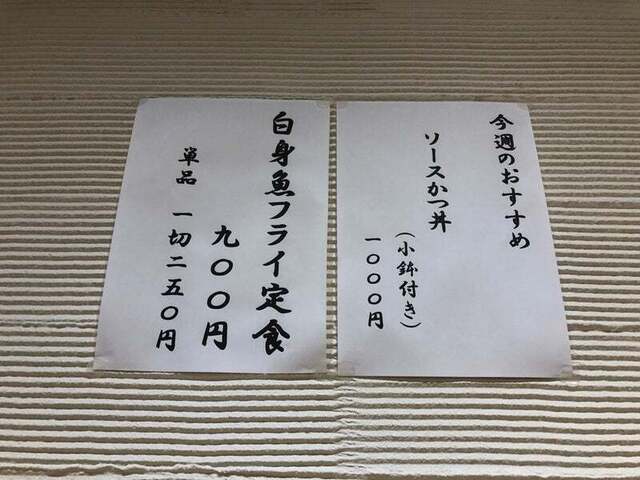 今週のおすすめ
ソースかつ丼
(小鉢付き)
一〇〇〇円
白身魚フライ定食
九〇〇円
単品 一切二五〇円